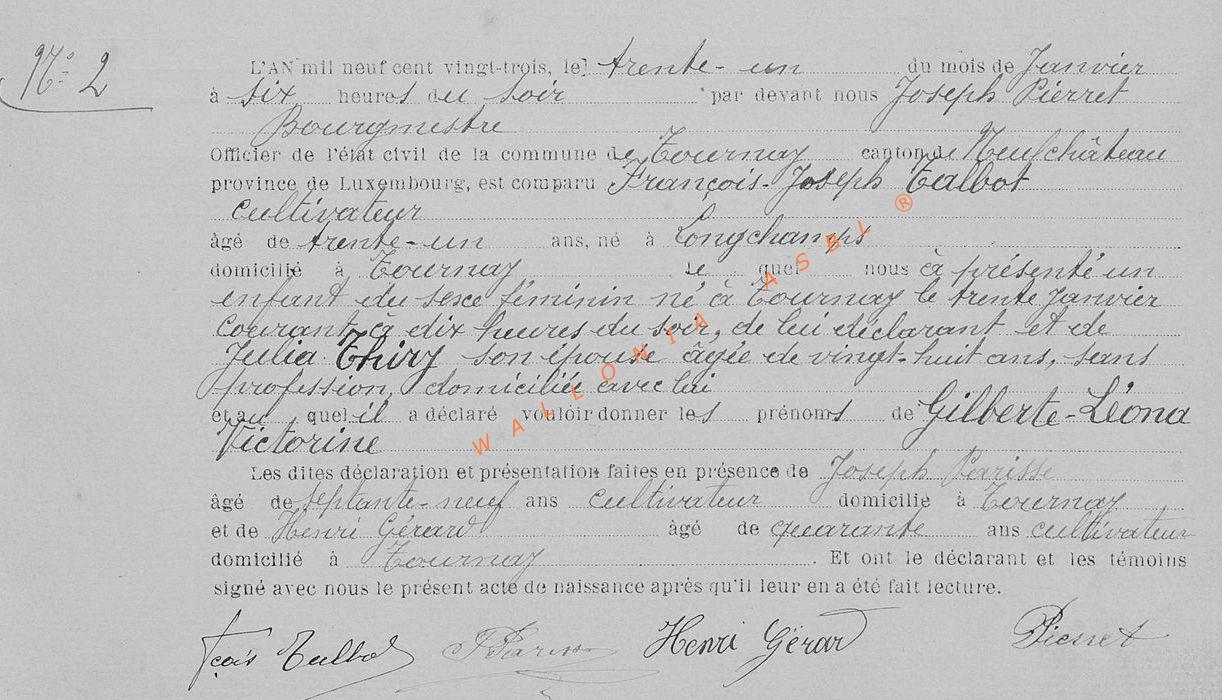 N° 2
L'AN mil neuf cent vingt-trois, le trente-un du mois de Janvier
à six heures du soir par devant nous Joseph Pierret
Bourgmestre
Officier de l'état civil de la commune de Tournay canton de Neufchâteau
province de Luxembourg, est comparu François-Joseph Talbot
cultivateur
âgé de trente-un ans, né à Longchamps
domicilié à Tournay le quel nous à présenté un
enfant du sexe féminin né à Tournay le trente Janvier
courant, à dix heures du soir, de lui déclarant et de
Julia Thiry son épouse âgée de vingt-huit ans, sans
profession, domiciliée avec lui
et au quel il a déclaré vouloir donner les prénoms de Gilberte-Léona
Victorine
Les dites déclaration et présentation faites en présence de Joseph Parisse
âgé de septante-neuf ans cultivateur domicilié à Tournay
et de Henri Gérard âgé de quarante ans cultivateur
domicilié à Tournay. Et ont le déclarant et les témoins
signé avec nous le présent acte de naissance après qu'il leur en a été fait lecture.
fçois Talbot J Pariss Henri Gérard Pierret
WALLONIA ASBL ®